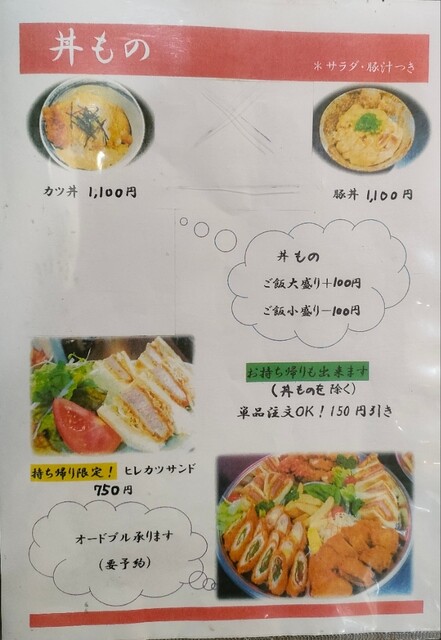 丼もの
＊サラダ・豚汁つき
カツ丼 1,100円
豚丼 1,100円
丼もの
ご飯大盛り+100円
ご飯小盛り-100円
お持ち帰りも出来ます
(丼ものを除く)
単品注文OK！150円引き
持ち帰り限定！ ヒレカツサンド
750円
オードブル承ります
(要予約)